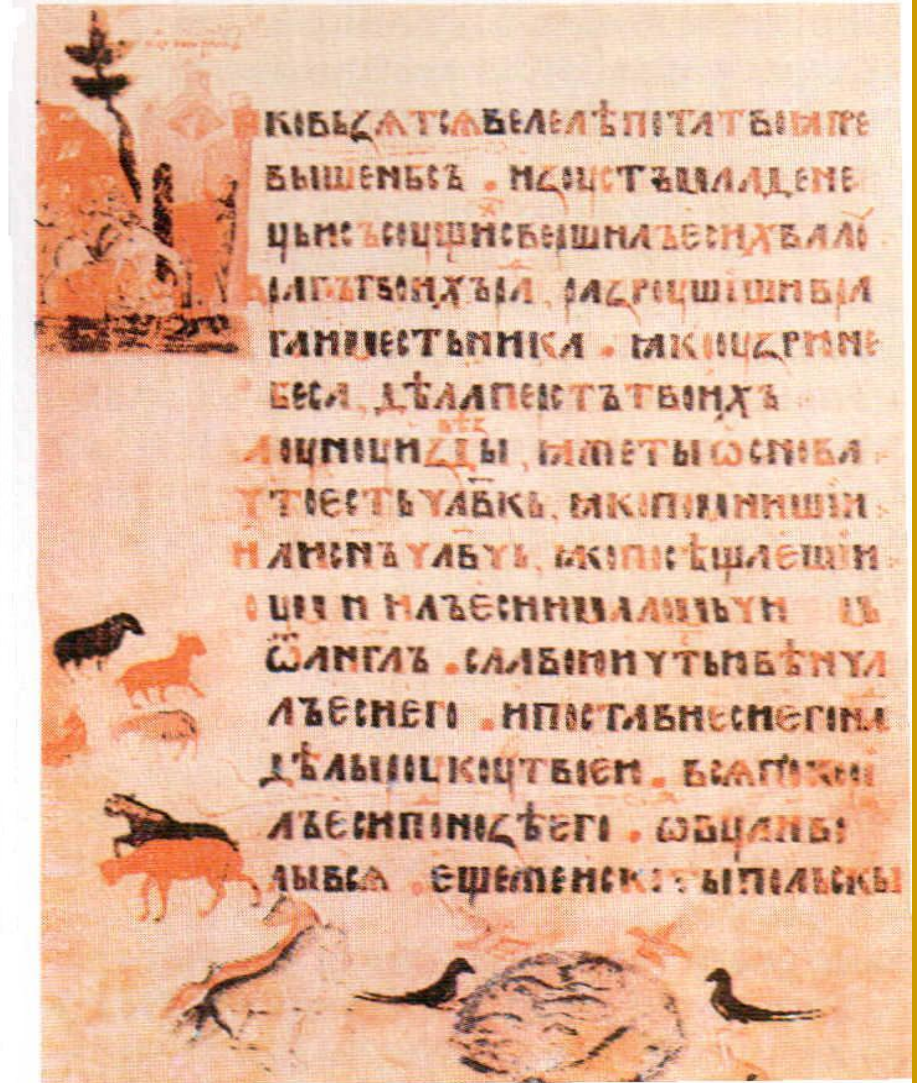 ꙖКОВЬꙀѦТСѦВЕЛЕЛѢПОТАТВОꙖПРЕ
ВЫШЕНБСЪ . ИꙀОУСТЪМЛАДЕНЕ
ЦЬИСЪСОУЩИСВЕРШИЛЪЕСИХВАЛОУ
ВРАГЪТВОИХЪРА , РАꙀРОУШІШИВРА
ГАИМЕСТЬНИКА . ꙖКООУꙀРЮНЕ
БЕСА , ДѢЛАПЕРСТЪТВОИХЪ
ЛОУНОУИꙀꙀДЫ , ꙖЖЕТЫѠСНОВА
ҮТОЕСТЬҮЛВКЬ , ꙖКОПОМНИШІИ
ИЛИСНЪҮЛВҮЬ , ꙖКОПОСѢЩАЕШІИ
ОУМНИЛЪЕСИИМАЛОМЬҮИ ЦЬ
ѾАНГЛЪ . СЛАВОЮИҮТЬЮВѢНҮА
ЛЪЕСИЕГО . ИПОСТАВИЕСИЕГОНА
ДѢЛЫРОУКОУТВОЕЮ . ВСѦПОКОРИ
ЛЪЕСИПОНОꙀѢЕГО . ѠВЦАИВО
ЛЫВСѦ . ЕЩЕЖЕИСКОТЫПОЛЬСКЫ